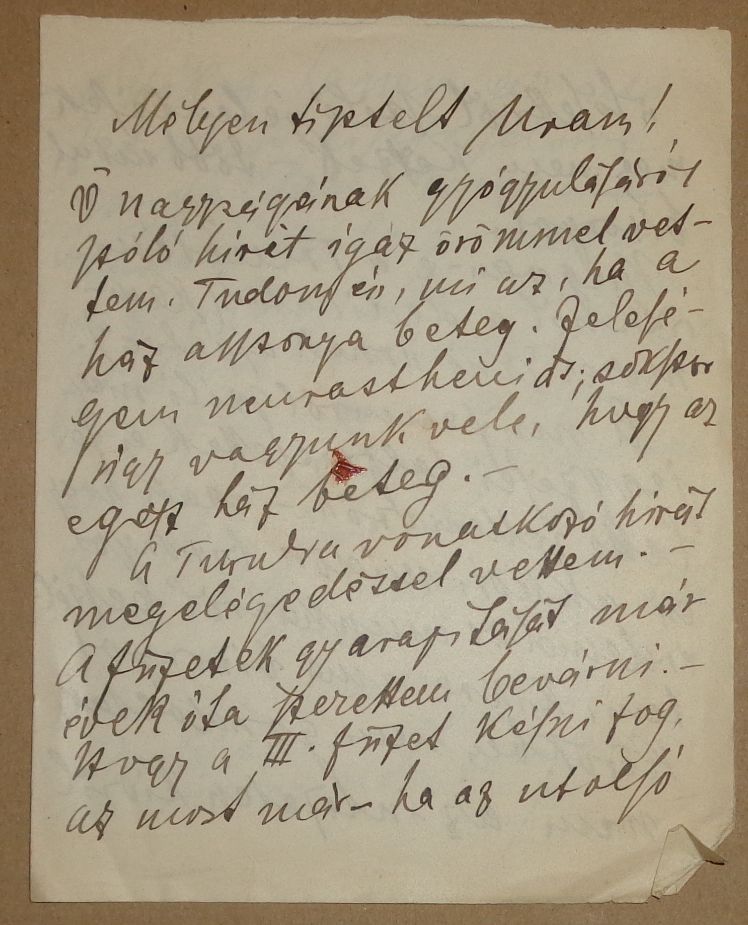 Mélyen tisztelt Uram!
Ő nagyságának gyógyulásáról
szóló hirét igaz örömmel vet-
tem. Tudom én, mi az, ha a
ház asszonya beteg. Felesé-
gem neurastheniás; sokszor
úgy vagyunk vele, hogy az
egész ház beteg. –
A Turulra vonatkozó hirét
megelégedéssel vettem. –
A füzetek gyarapitását már
évek óta szerettem bevárni. –
Hogy a III. füzet késni fog,
az most már – ha az utolsó